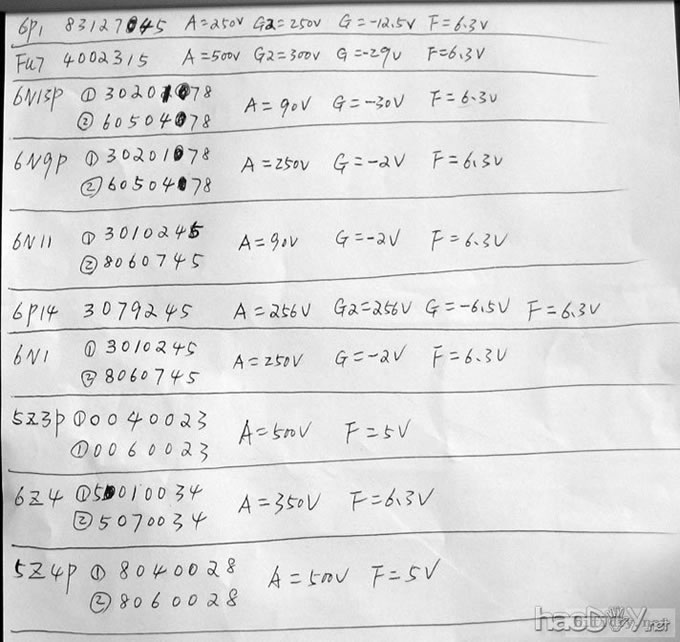 6P1 83127045 A=250V G2=250V G=-12.5V F=6.3V
FU7 4002315 A=500V G2=300V G=-29V F=6.3V
6N13P ① 30201078 A=90V G=-30V F=6.3V
② 60504078
6N9P ① 30201078 A=250V G=-2V F=6.3V
② 60504078
6N11 ① 3010245 A=90V G=-2V F=6.3V
② 8060745
6P14 3079245 A=256V G2=256V G=-6.5V F=6.3V
6N1 ① 3010245 A=250V G=-2V F=6.3V
② 8060745
5Z3P ① 0040023 A=500V F=5V
① 0060023
6Z4 ① 5010034 A=350V F=6.3V
② 5070034
5Z4P ① 8040028 A=500V F=5V
② 8060028
haoDIY.net